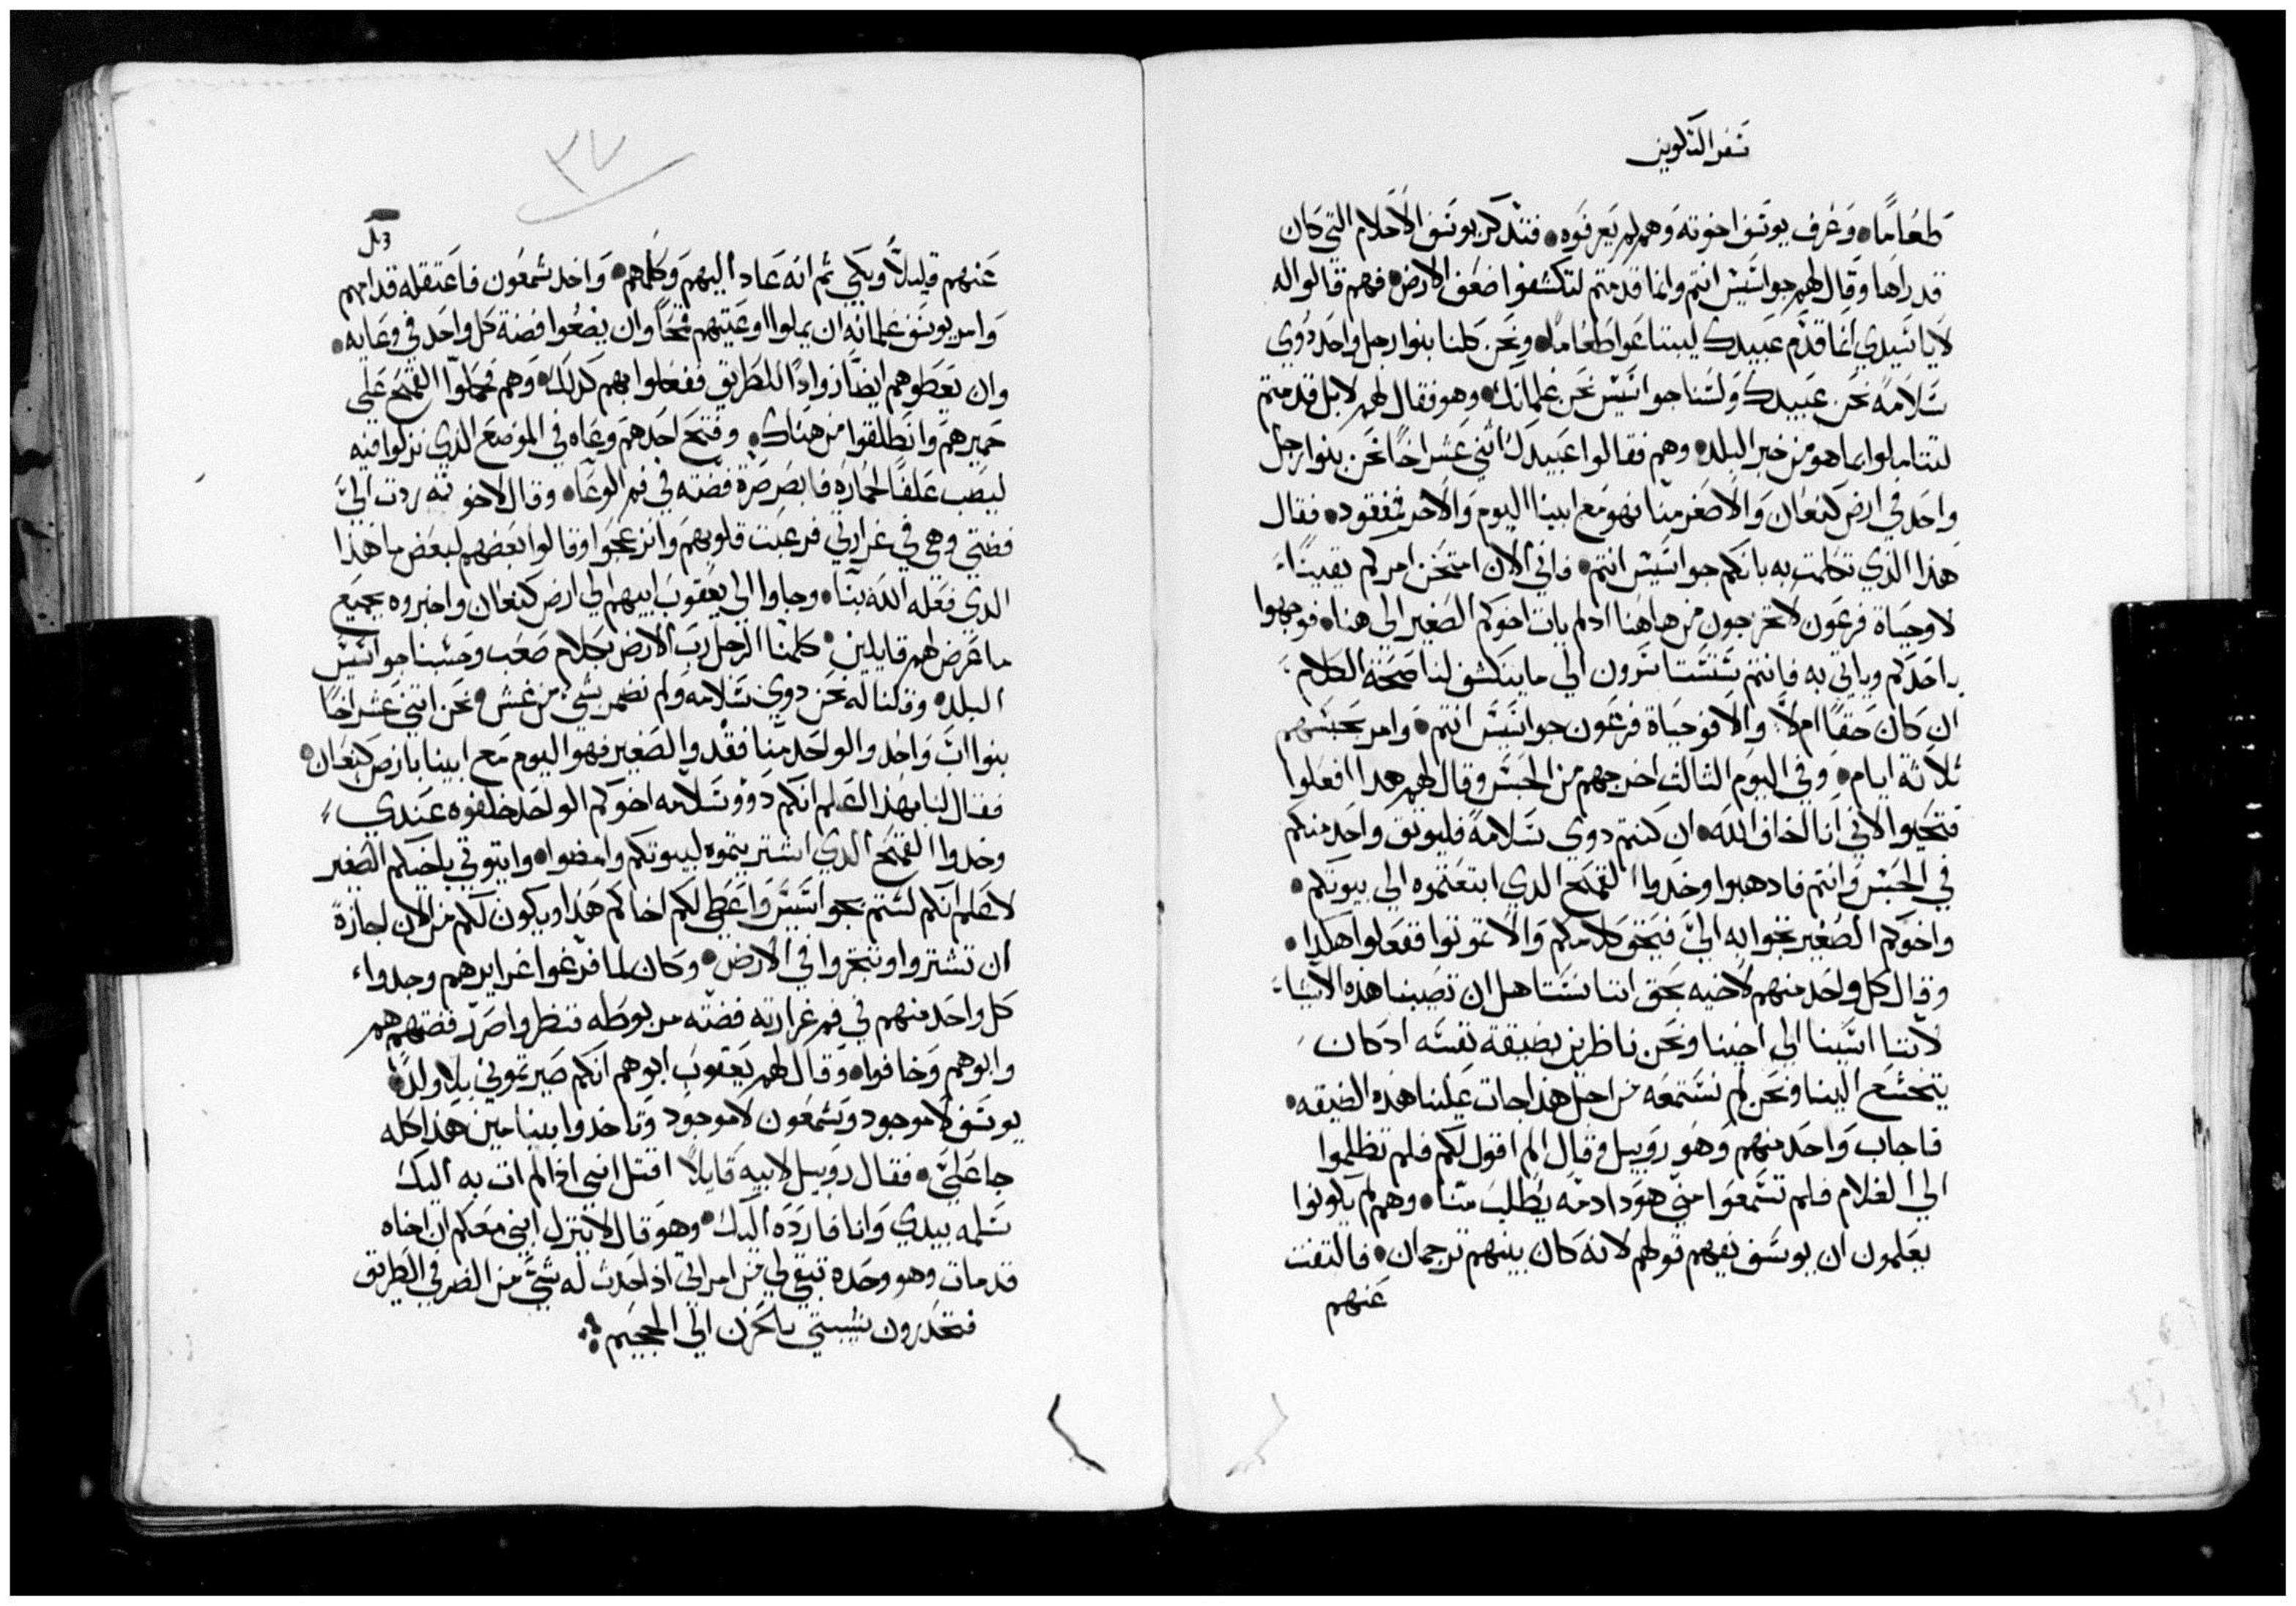 سفر التكوين
طعاما وعرف يوسف اخوته وهم لم يعرفوه فتذكر يوسف الاحلام التي كان
قد راها وقال لهم جواسيس انتم وانما قدمتم لتكشفوا ضعف الارض فهم قالوا له
لا يا سيدي انما قدم عبيدك ليبتاعوا طعاما ونحن كلنا بنوا رجل واحد ذوي
سلامه نحن عبيدك ولسنا جواسيس نحن غلمانك وهو فقال لهم لا بل قدمتم
لتتاملوا ما هو من خبر البلد وهم فقالوا عبيدك اثني عشر اخا نحن بنوا رجل
واحد في ارض كنعان والاصغر منا فهو مع ابينا اليوم والاخر مفقود فقال
هذا الذي تكلمت به بانكم جواسيس انتم فاني الان امتحن امركم يقينا
لا وحياة فرعون لا تخرجون من هاهنا اد لم يات اخوكم الصغير الي هنا فوجهوا
احدكم وياتي به فانتم تستاسرون الي ما ينكشف لنا صحة الكلام
ان كان حقا ام لا والا فوحياة فرعون جواسيس انتم وامر بحبسهم
ثلاثة ايام وفي اليوم الثالث اخرجهم من الحبس وقال لهم هدا افعلوا
فتحيوا لاني انا لخاف الله ان كنتم دوي سلامة فليوثق واحد منكم
في الحبس وانتم فادهبوا وخدوا القمح الدي ابتعتموه الي بيوتكم
واخوكم الصغير تجوا به الي فيتحق كلامكم والا تموتوا ففعلوا هكدا
وقال كل واحد منهم لاخيه بحق اننا نستاهل ان تصيبنا هذه الاشياء
لاننا اسينا الي اخينا ونحن ناظرين بضيقة نفسه ادكان
يتخشع الينا ونحن لم نستمعه من اجل هذا جات علينا هذه الضيقه
فاجاب واحد منهم وهو روبيل وقال الم اقول لكم فلم تظلموا
الي الغلام فلم تسمعوا مني هودا دمه يطلب منا وهم لم يكونوا
يعلمون ان يوسف يفهم قولهم لانه كان بينهم ترجمان فالتفت
عنهم
٣٧
عنهم قليلا وبكي ثم انه عاد اليهم وكلمهم واخد شمعون فاعتقله قدامهم
وامر يوسف غلمانه ان يملوا اوعيتهم قمحا وان يضعوا فضة كل واحد في وعايه
وان يعطوهم ايضا زوادا للطريق ففعلوا بهم كدلك وهم فحملوا القمح علي
حميرهم وانطلقوا من هناك وفتح احدهم وعاه في الموضع الذي نزلوا فيه
ليصب علفا لحماره فابصر صرة فضته في فم الوعاء وقال لاخوته ردت الي
فضتي وهي في غرارتي فرعبت قلوبهم وانزعجوا وقالوا بعضهم لبعض ما هذا
الدي فعله الله بنا وجاوا الي يعقوب ابيهم الي ارض كنعان واخبروه بجميع
ما عرض لهم قايلين كلمنا الرجل رب الارض بكلام صعب وحسبنا جواسيس
البلد وقلنا له نحن دوي سلامه ولم نضمر بشي من غش ونحن اتني عشر اخا
بنوا اب واحد والواحد منا فقد والصغير فهو اليوم مع ابينا بارض كنعان
فقال لنا بهذا اعلم انكم ذوو سلامه اخوكم الواحد خلفوه عندي
وخدوا القمح الدي اشتريتموه لبيوتكم وامضوا وايتوني باخيكم الصغير
لاعلم انكم لستم بجواسيس واعطي لكم اخاكم هذا ويكون لكم من الان اجازة
ان تشتروا وتتجروا في الارض وكان لما فرغوا غرايرهم وجدوا
كل واحد منهم في فم غرارته فضته مربوطه فنظروا صرر فضتهم هم
وابوهم وخافوا وقال لهم يعقوب ابوهم انكم صيرتموني بلا ولد
يوسف لا موجود وشمعون لا موجود وتاخدوا بنيامين هذا كله
جا علي فقال روبيل لابيه قايلا اقتل ابني اد لم ات به اليك
سلمه بيدي وانا فارده اليك وهو قال لا ينزل ابني معكم ان اخاه
قد مات وهو وحده تبقي لي من امراتي اذ احدث له شي من الضر في الطريق
فتحدرون شيبتي بالحزن الي الجحيم